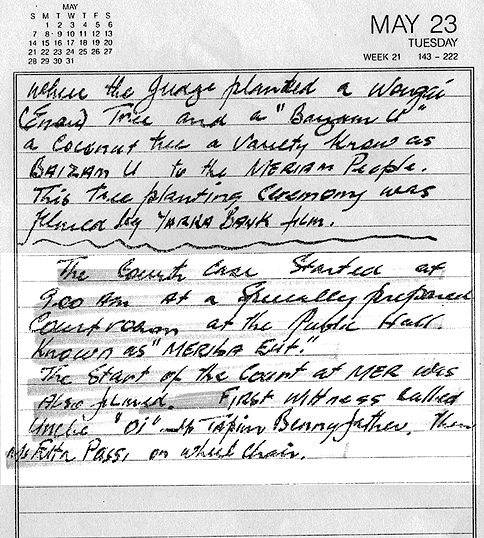 MAY
S M T W T F S
1 2 3 4 5 6
7 8 9 10 11 12 13
14 15 16 17 18 19 20
21 22 23 24 25 26 27
28 29 30 31
MAY 23
TUESDAY
WEEK 21 143 – 222
where the Judge planted a Wongai
(Enau) Tree and a "Baizam U"
a Coconut tree a Variety know as
BAIZAM U to the MERIAM People.
This tree planting Ceremony was
filmed by YARRA BANK film.
The Court Case Started at
9.00 AM at a Specially prepared
Courtroom at the Public Hall
Known as "MERIBA Eut."
The Start of the Court at MER was
Also filmed. First witness called
Uncle "Oi" Tapim Bennyfather. Then
Etta Passi on wheel Chair.